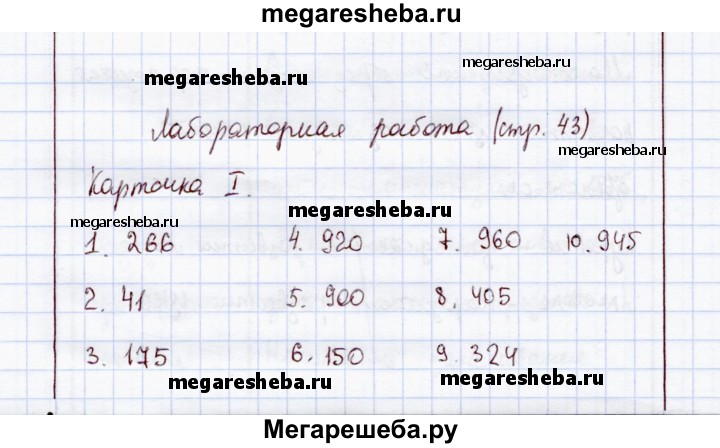 megaresheba.ru
megaresheba.ru
Лабораторная работа (стр. 43)
megaresheba.ru
Карточка I.
megaresheba.ru
megaresheba.ru
1. 266 4. 920 7. 960 10. 945
2. 41 5. 900 8. 405
3. 175 6. 150 9. 324
megaresheba.ru
megaresheba.ru
Мегарешеба.ру